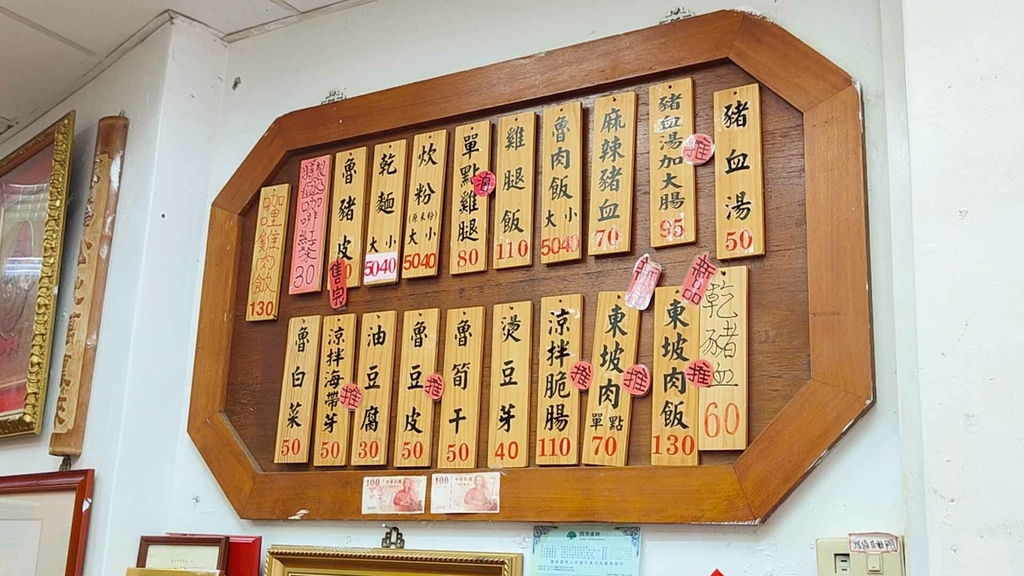 豬血湯 50
豬血湯加大腸 95
推
麻辣豬血 70
魯肉飯 大小 5040
雞腿飯 110
單點雞腿 80
炊粉 (原米粉) 大小 5040
乾麵 大小 5040
魯豬皮
售完
咖啡紅茶 30
咖哩雞肉飯 130
乾豬血 60
新品
東坡肉飯 130
推
東坡肉 單點 70
推
涼拌脆腸 110
推
燙豆芽 40
魯筍干 50
魯豆皮 50
推
油豆腐 30
涼拌海帶芽 50
推
魯白菜 50
100
100